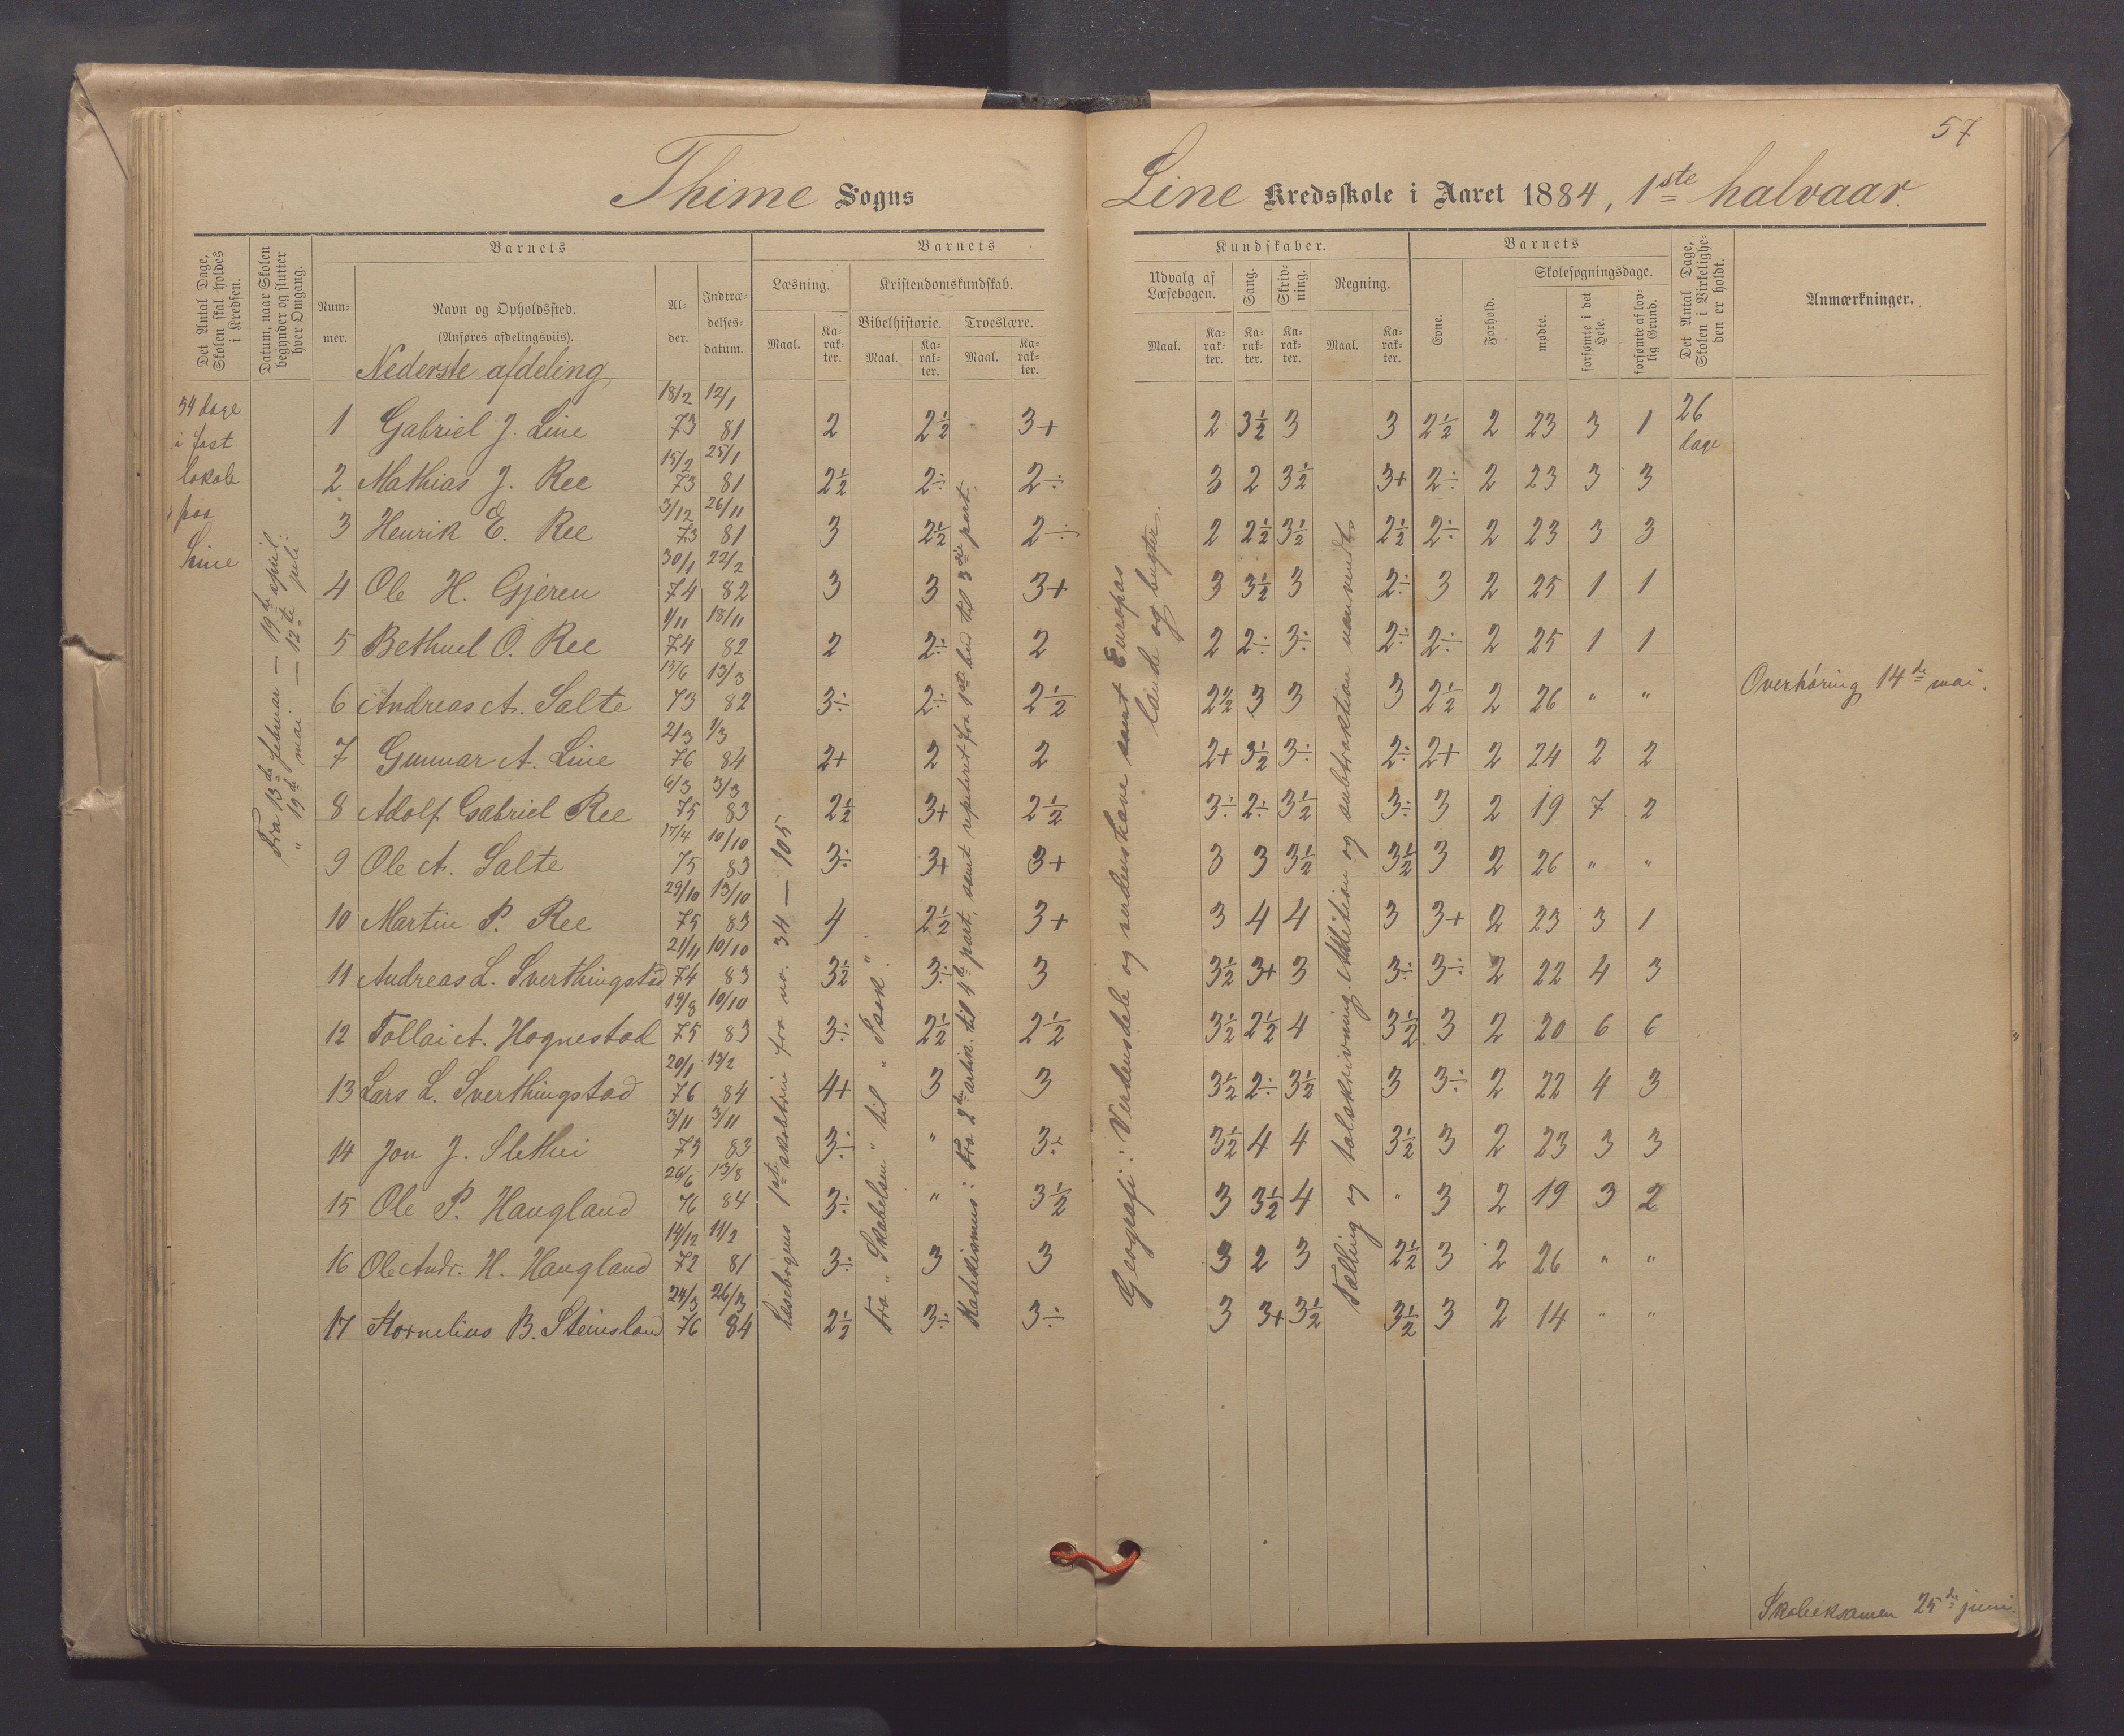 57
Thime Sogns
Line Kredsskole i Aaret 1884, 1ste halvaar.
Det Antal Dage, Skolen skal holdes i Kredsen.
Datum, naar Skolen begynder og slutter hver Omgang.
Barnets
Num-mer.
Navn og Opholdssted.
(Anføres afdelingsviis).
Al-der.
Indtræ-delses-datum.
Barnets
Læsning.
Maal.
Ka-rak-ter.
Kristendomskundskab.
Bibelhistorie.
Maal.
Ka-rak-ter.
Troeslære.
Maal.
Ka-rak-ter.
Kundskaber.
Udvalg af Læsebogen.
Maal.
Ka-rak-ter.
Sang.
Ka-rak-ter.
Skriv-ning.
Ka-rak-ter.
Regning.
Maal.
Ka-rak-ter.
Barnets
Evne.
Forhold.
Skolesøgningsdage.
mødte.
forsømte i det Hele.
forsømte af lov-lig Grund.
Det Antal Dage, Skolen i Virkelighe-den er holdt.
Anmærkninger.
Nederste afdeling
54 dage
i fast
lokale
paa
Line
Fra 13de februar — 19de april.
" 19de mai — 12te juli
26
dage
1 Gabriel J. Line 18/2 73 12/1 81 2 2½ 3+ 2 3½ 3 3 2½ 2 23 3 1
2 Mathias J. Ree 15/2 73 25/1 81 2½ 2÷ 2÷ 3 2 3½ 3+ 2÷ 2 23 3 3
3 Henrik E. Ree 3/12 73 26/11 81 3 2½ 2÷ 2 2½ 3½ 2½ 2÷ 2 23 3 3
4 Ole H. Gjeren 30/1 74 22/2 82 3 3 3+ 3 3½ 3 2÷ 3 2 25 1 1
5 Bethuel O. Ree 1/11 74 18/11 82 2 2÷ 2 2 2÷ 3÷ 2÷ 2÷ 2 25 1 1
6 Andreas A. Salte 13/6 73 13/3 82 3÷ 2÷ 2½ 2½ 3 3 3 2½ 2 26 " "
7 Gunnar A. Line 2/3 76 1/3 84 2+ 2 2 2+ 3½ 3÷ 2÷ 2+ 2 24 2 2
8 Adolf Gabriel Ree 6/3 75 3/3 83 2½ 3+ 2½ 3÷ 2÷ 3½ 3÷ 3 2 19 7 2
9 Ole A. Salte 17/4 75 10/10 83 3÷ 3+ 3+ 3 3 3½ 3½ 3 2 26 " "
10 Martin P. Ree 29/10 75 13/10 83 4 2½ 3+ 3 4 4 3 3+ 2 23 3 1
11 Andreas L. Sverthingstad 21/11 74 10/10 83 3½ 3÷ 3 3½ 3+ 3 3÷ 3÷ 2 22 4 3
12 Tollai A. Hognestad 19/8 75 10/10 83 3÷ 2½ 2½ 3½ 2½ 4 3½ 3 2 20 6 6
13 Lars L. Sverthingstad 20/1 76 13/2 84 4+ 3 3 3½ 2÷ 3½ 3 3÷ 2 22 4 3
14 Jon J. Slethei 3/11 73 3/11 83 3÷ " 3÷ 3½ 4 4 3½ 3 2 23 3 3
15 Ole P. Haugland 26/6 76 13/8 84 3÷ " 3½ 3 3½ 4 " 3 2 19 3 2
16 Ole Andr. H. Haugland 14/12 72 11/2 81 3÷ 3 3 3 2 3 2½ 3 2 26 " "
17 Kornelius B. Steinsland 24/3 76 26/3 84 2½ 3÷ 3÷ 3 3+ 3½ 3½ 3 2 14 " "
Læsebogens 1ste skoletrin fra nr. 34 — 105
Fra „Skabelsen" til „Isak".
Katekismus: Fra 2den artik. til 4de part, samt repetert fra 1ste bud til 3die part.
Geografi: Verdensdele og verdenshave samt Europas
lande og bugter.
Tælling og talskrivning. Addition og subtraktion uanvendt.
Overhøring 14de mai.
Skoleeksamen 25de juni.